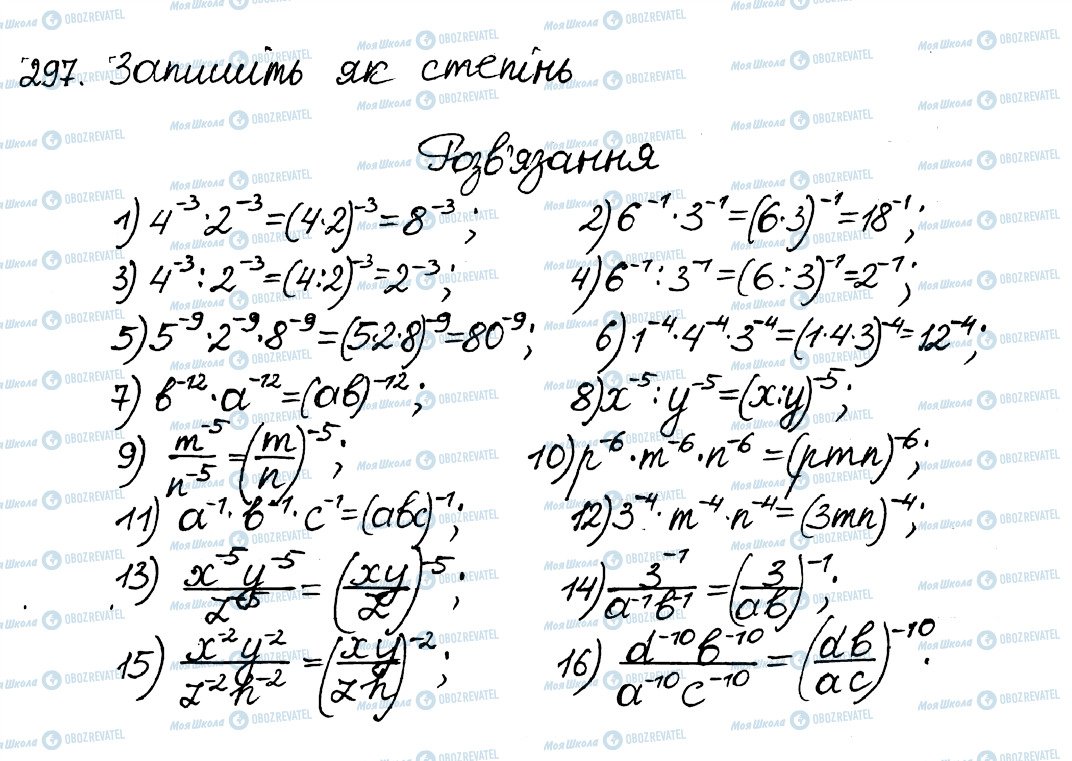 297. Запишіть як степінь
Розв'язання
1) 4⁻³·2⁻³=(4·2)⁻³=8⁻³; 2) 6⁻¹·3⁻¹=(6·3)⁻¹=18⁻¹;
3) 4⁻³:2⁻³=(4:2)⁻³=2⁻³; 4) 6⁻¹:3⁻¹=(6:3)⁻¹=2⁻¹;
5) 5⁻⁹·2⁻⁹·8⁻⁹=(5·2·8)⁻⁹=80⁻⁹; 6) 1⁻⁴·4⁻⁴·3⁻⁴=(1·4·3)⁻⁴=12⁻⁴;
7) b⁻¹²·a⁻¹²=(ab)⁻¹²; 8) x⁻⁵:y⁻⁵=(x:y)⁻⁵;
9) m⁻⁵/n⁻⁵=(m/n)⁻⁵; 10) p⁻⁶·m⁻⁶·n⁻⁶=(pmn)⁻⁶;
11) a⁻¹·b⁻¹·c⁻¹=(abc)⁻¹; 12) 3⁻⁴·m⁻⁴·n⁻⁴=(3mn)⁻⁴;
13) x⁻⁵y⁻⁵/z⁻⁵=(xy/z)⁻⁵; 14) 3⁻¹/a⁻¹b⁻¹=(3/ab)⁻¹;
15) x⁻²y⁻²/z⁻²h⁻²=(xy/zh)⁻²; 16) d⁻¹⁰b⁻¹⁰/a⁻¹⁰c⁻¹⁰=(db/ac)⁻¹⁰.